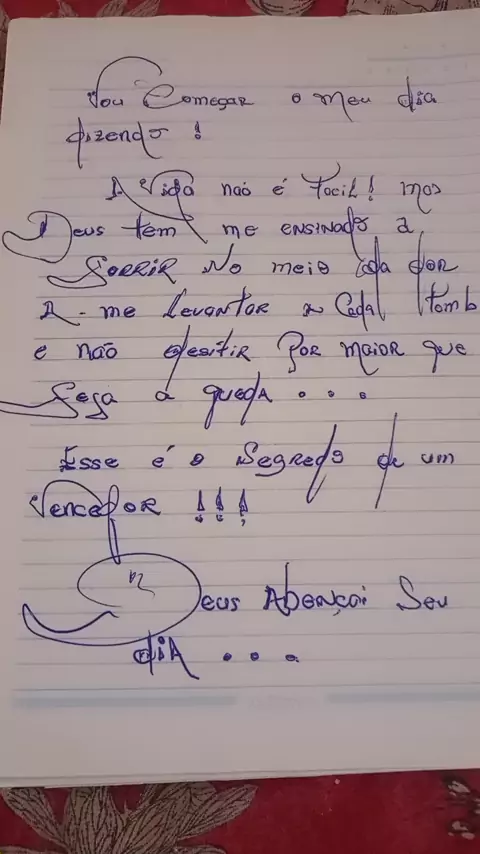 Vou Começar o meu dia
dizendo !
A vida naõ é facil! mas
Deus tem me ensinado a
SORRIR No meio da dor
A - me levantar a Cada tomb
e não desitir por maior que
seja a queda . . .
Esse é o segredo de um
Vencedor !!!
Deus Abençoi Seu
dia . . .